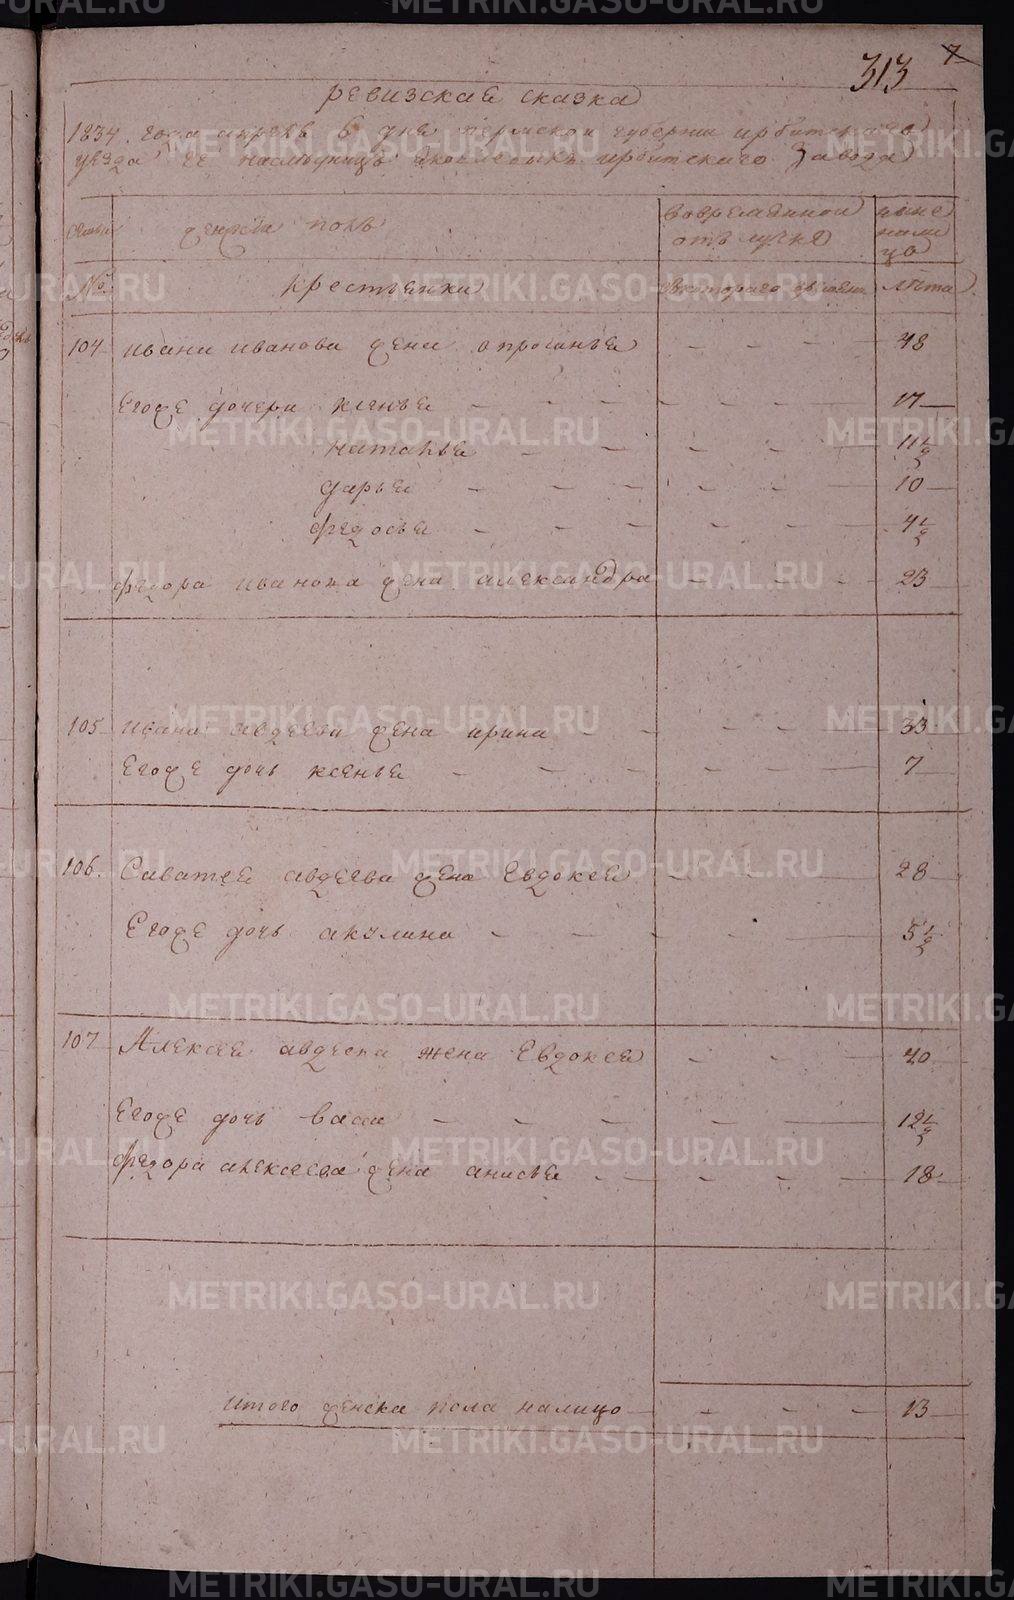 313 7
ревизская сказка
1834. года апреля 6 дня пермской губернии ирбитскаго
уезда г. наследниц Яковлевых ирбитского завода
семьи женска полъ вовременной отъ лучке ныне нали цо
№ крестьянки скотораго времени лѣта
104 ивана иванова жена апросинья - - - 48
Егоже дочери ксенья - - - 17
наталья - - - 11 1/2
дарья - - - 10
федосья - - - 4 1/2
федора иванова жена александра - - - 23
105 ивана авдеева жена ирина - - - 33
Егоже дочь ксенья - - - 7
106. Саватея авдеева жена Евдокея - - - 28
Егоже дочь акулина - - - 5 1/2
107 Алексея авдеева жена Евдокея - - - 40
Егоже дочь васса - - - 12 1/2
федора алексеева жена анисья - - - 18
итого женска пола налицо - - - 13
METRIKI.GASO-URAL.RU